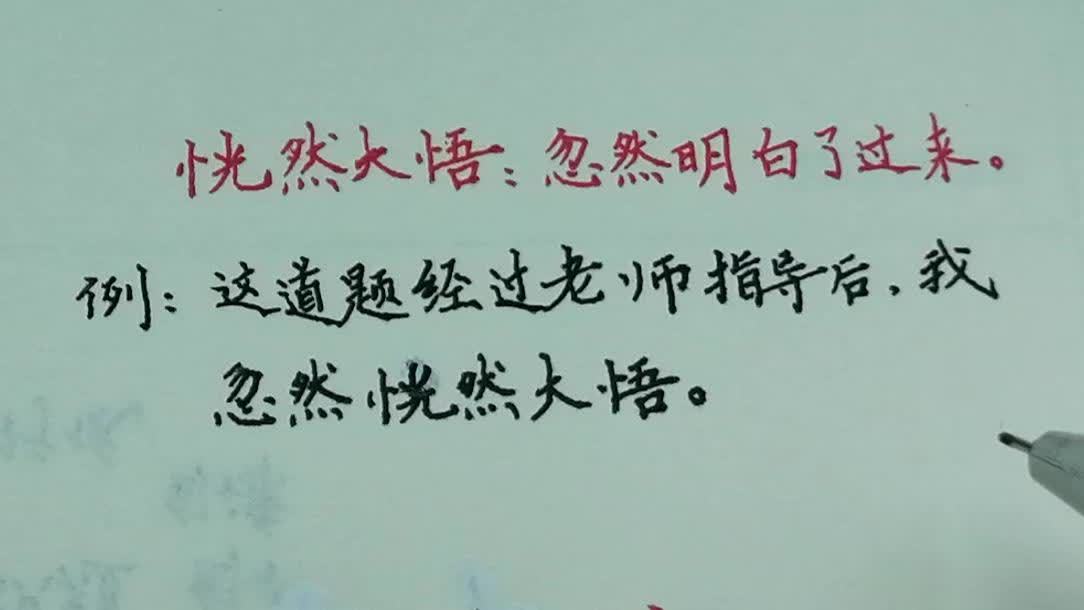 恍然大悟：忽然明白了过来。
例：这道题经过老师指导后，我
忽然恍然大悟。